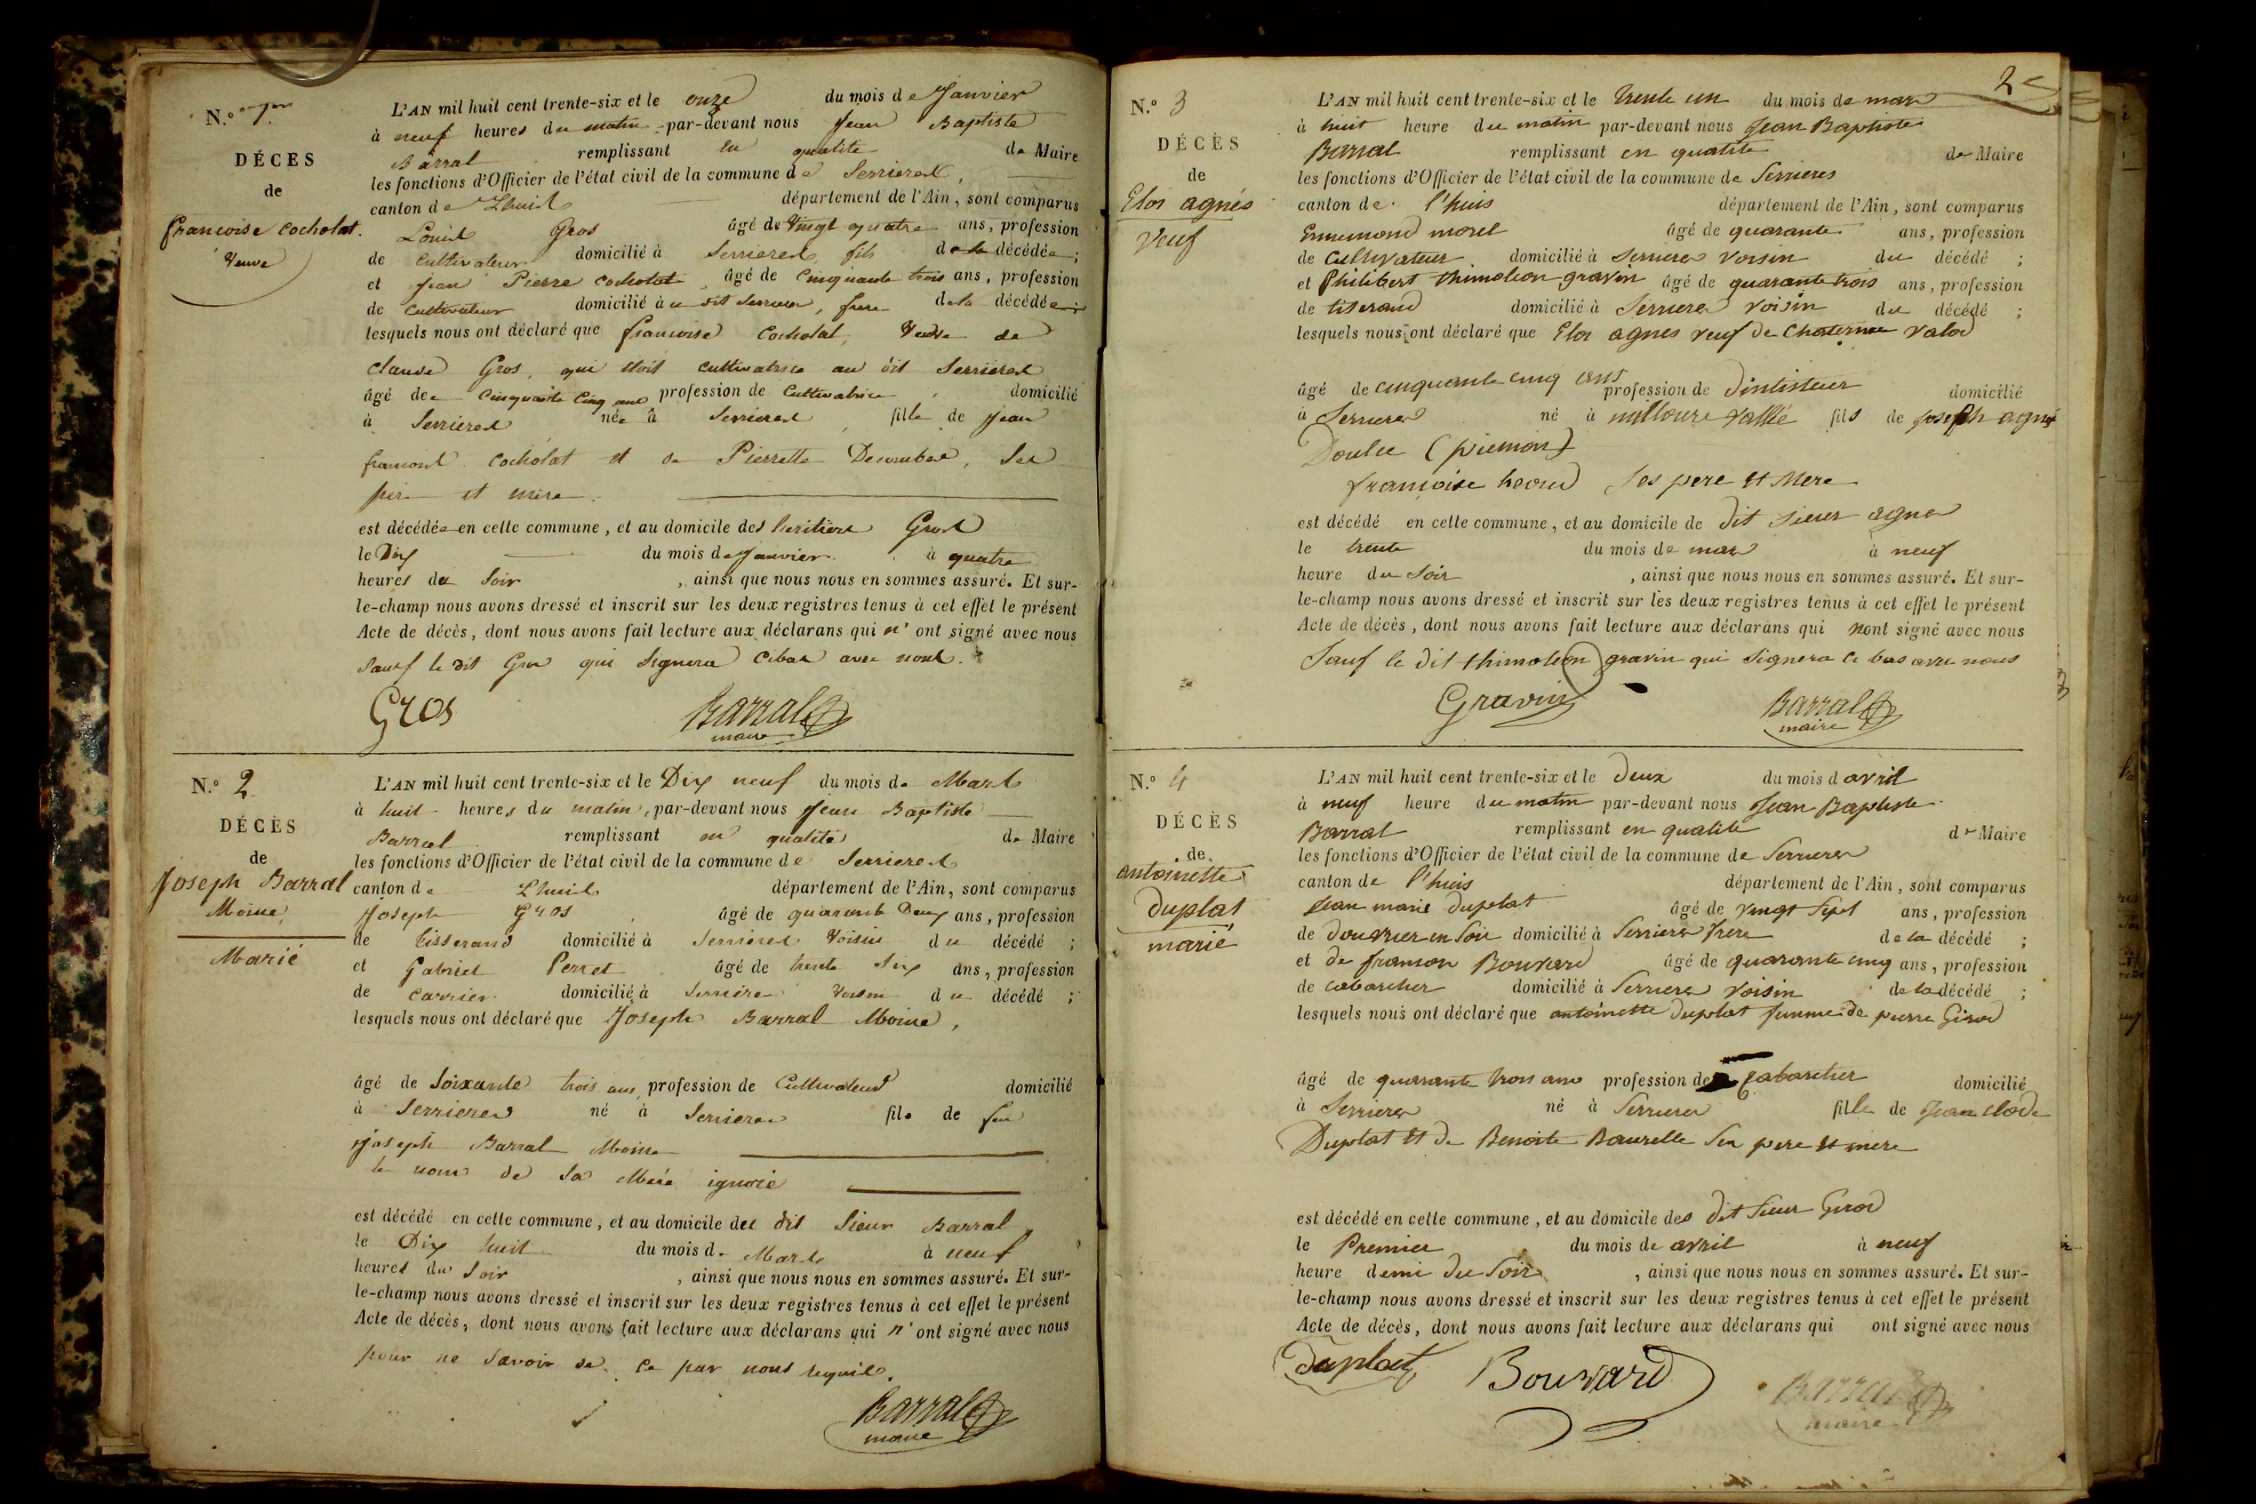 N.o 1er
DÉCES
de
francoise cocholat.
Veuve
L'AN mil huit cent trente-six et le onze du mois de Janvier
à neuf heures du matin par-devant nous Jean Baptiste
Barral remplissant en qualité de Maire
les fonctions d'Officier de l'état civil de la commune de Serrieres,
canton de Lhuis département de l'Ain, sont comparus
Louis Gros âgé de Vingt quatre ans, profession
de Cultivateur domicilié à Serrieres fils de la décédée;
et jean Pierre cocholat âgé de Cinquante trois ans, profession
de Cultivateur domicilié à u dit Serrieres, frere de la décédée;
lesquels nous ont déclaré que francoise Cocholat, Veuve de
Claude Gros, qui étoit cultivatrice au dit Serrieres
âgé de Cinquante Cinq ans profession de Cultivatrice domicilié
à Serrieres née à Serrieres, fille de Jean
cocholat et de Pierrette, Ses
père et mère.
est décédée en cette commune, et au domicile des héritiers Gros
le Dix du mois de Janvier à quatre
heures du Soir, ainsi que nous nous en sommes assuré. Et sur-
le-champ nous avons dressé et inscrit sur les deux registres tenus à cet effet le présent
Acte de décès, dont nous avons fait lecture aux déclarans qui n'ont signé avec nous
Sauf le dit Gros qui Signera Cibas avec nous.
Gros Barral
maire
N.o 2
DÉCÈS
de
Joseph Barral
Moine,
Marié
L'AN mil huit cent trente-six et le Dix neuf du mois de Mars
à huit heures du matin, par-devant nous Jean Baptiste
Barral remplissant en qualité de Maire
les fonctions d'Officier de l'état civil de la commune de Serrieres
canton de Lhuis département de l'Ain, sont comparus
Joseph Gros âgé de quarante Deux ans, profession
de tisserand domicilié à Serrieres Voisin du décédé;
et Gabriel Perret âgé de trente Six ans, profession
de carrier domicilié à Serrieres Voisin du décédé;
lesquels nous ont déclaré que Joseph Barral Moine,
âgé de Soixante trois ans, profession de Cultivateur domicilié
à Serrieres né à Serrieres fils de feu
Joseph Barral Moine
le nom de Sa Mère ignoré
est décédé en cette commune, et au domicile du dit Sieur Barral
le Dix huit du mois de Mars à neuf
heures du Soir, ainsi que nous nous en sommes assuré. Et sur-
le-champ nous avons dressé et inscrit sur les deux registres tenus à cet effet le présent
Acte de décès, dont nous avons fait lecture aux déclarans qui n'ont signé avec nous
pour ne Savoir de ce par nous requis.
Barral
maire
2
N.o 3
DÉCÈS
de
Eloi agnés
Veuf
L'AN mil huit cent trente-six et le trente un du mois de mars
à huit heure du matin par-devant nous Jean Baptiste
Barral remplissant en qualité de Maire
les fonctions d'Officier de l'état civil de la commune de Serrieres
canton de l'huis département de l'Ain, sont comparus
Ennemond morel âgé de quarante ans, profession
de Cultivateur domicilié à Serrieres voisin du décédé;
et Philibert thimoleon gravin âgé de quarante trois ans, profession
de tiserand domicilié à Serrieres voisin du décédé;
lesquels nous ont déclaré que Eloi agnes veuf de Chaterine valod
âgé de cinquante cinq ans profession de domicilié
à Serrieres né à fils de joseph agnes
(piemon)
francoise Ses pere et Mere
est décédé en cette commune, et au domicile de dit sieur agnes
le trente du mois de mars à neuf
heure du Soir, ainsi que nous nous en sommes assuré. Et sur-
le-champ nous avons dressé et inscrit sur les deux registres tenus à cet effet le présent
Acte de décès, dont nous avons fait lecture aux déclarans qui nont signé avec nous
Sauf le dit thimoleon gravin qui Signera ci bas avec nous
Gravin Barral
maire
N.o 4
DÉCÈS
de
antoinette
duplat
marié
L'AN mil huit cent trente-six et le deux du mois d avril
à neuf heure du matin par-devant nous Jean Baptiste
Barral remplissant en qualité de Maire
les fonctions d'Officier de l'état civil de la commune de Serrieres
canton de l'huis département de l'Ain, sont comparus
Jean marie duplat âgé de vingt Sept ans, profession
de domicilié à Serrieres frere de la décédé;
et de francon Bouvard âgé de quarante cinq ans, profession
de cabartier domicilié à Serrieres voisin de la décédé;
lesquels nous ont déclaré que antoinette duplat femme de pierre Girod
âgé de quarante trois ans profession de cabartier domicilié
à Serrieres né à Serrieres fille de Jean clode
Duplat et de Benoite Ses pere et mere
est décédé en cette commune, et au domicile des dit Sieur Girod
le Premier du mois de avril à neuf
heure demi du Soir, ainsi que nous nous en sommes assuré. Et sur-
le-champ nous avons dressé et inscrit sur les deux registres tenus à cet effet le présent
Acte de décès, dont nous avons fait lecture aux déclarans qui ont signé avec nous
Duplat Bouvard Barral
maire